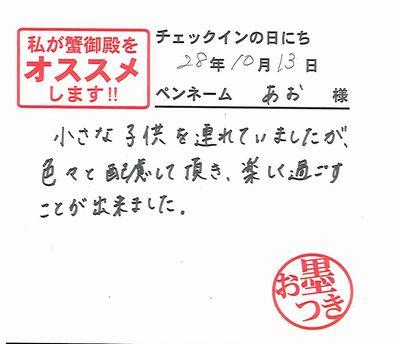 私が蟹御殿を
オススメ
します!!
チェックインの日にち
28年10月13日
ペンネーム あお 様
小さな子供を連れていましたが、
色々と配慮して頂き、楽しく過ごす
ことが出来ました。
お墨
つき